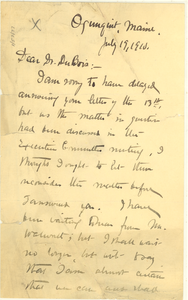 Ogunquit, Maine.
July 19, 1910.
Dear Dr. DuBois:-
I am sorry to have delayed
answering your letter of the 13th,
but as the matter in question
had been discussed in the
Executive Committee meeting, I
thought I ought to let them
reconsider the matter before
I answered you. I have
been waiting from
but I shall wait
no longer, but will say
that I am almost certain
that we